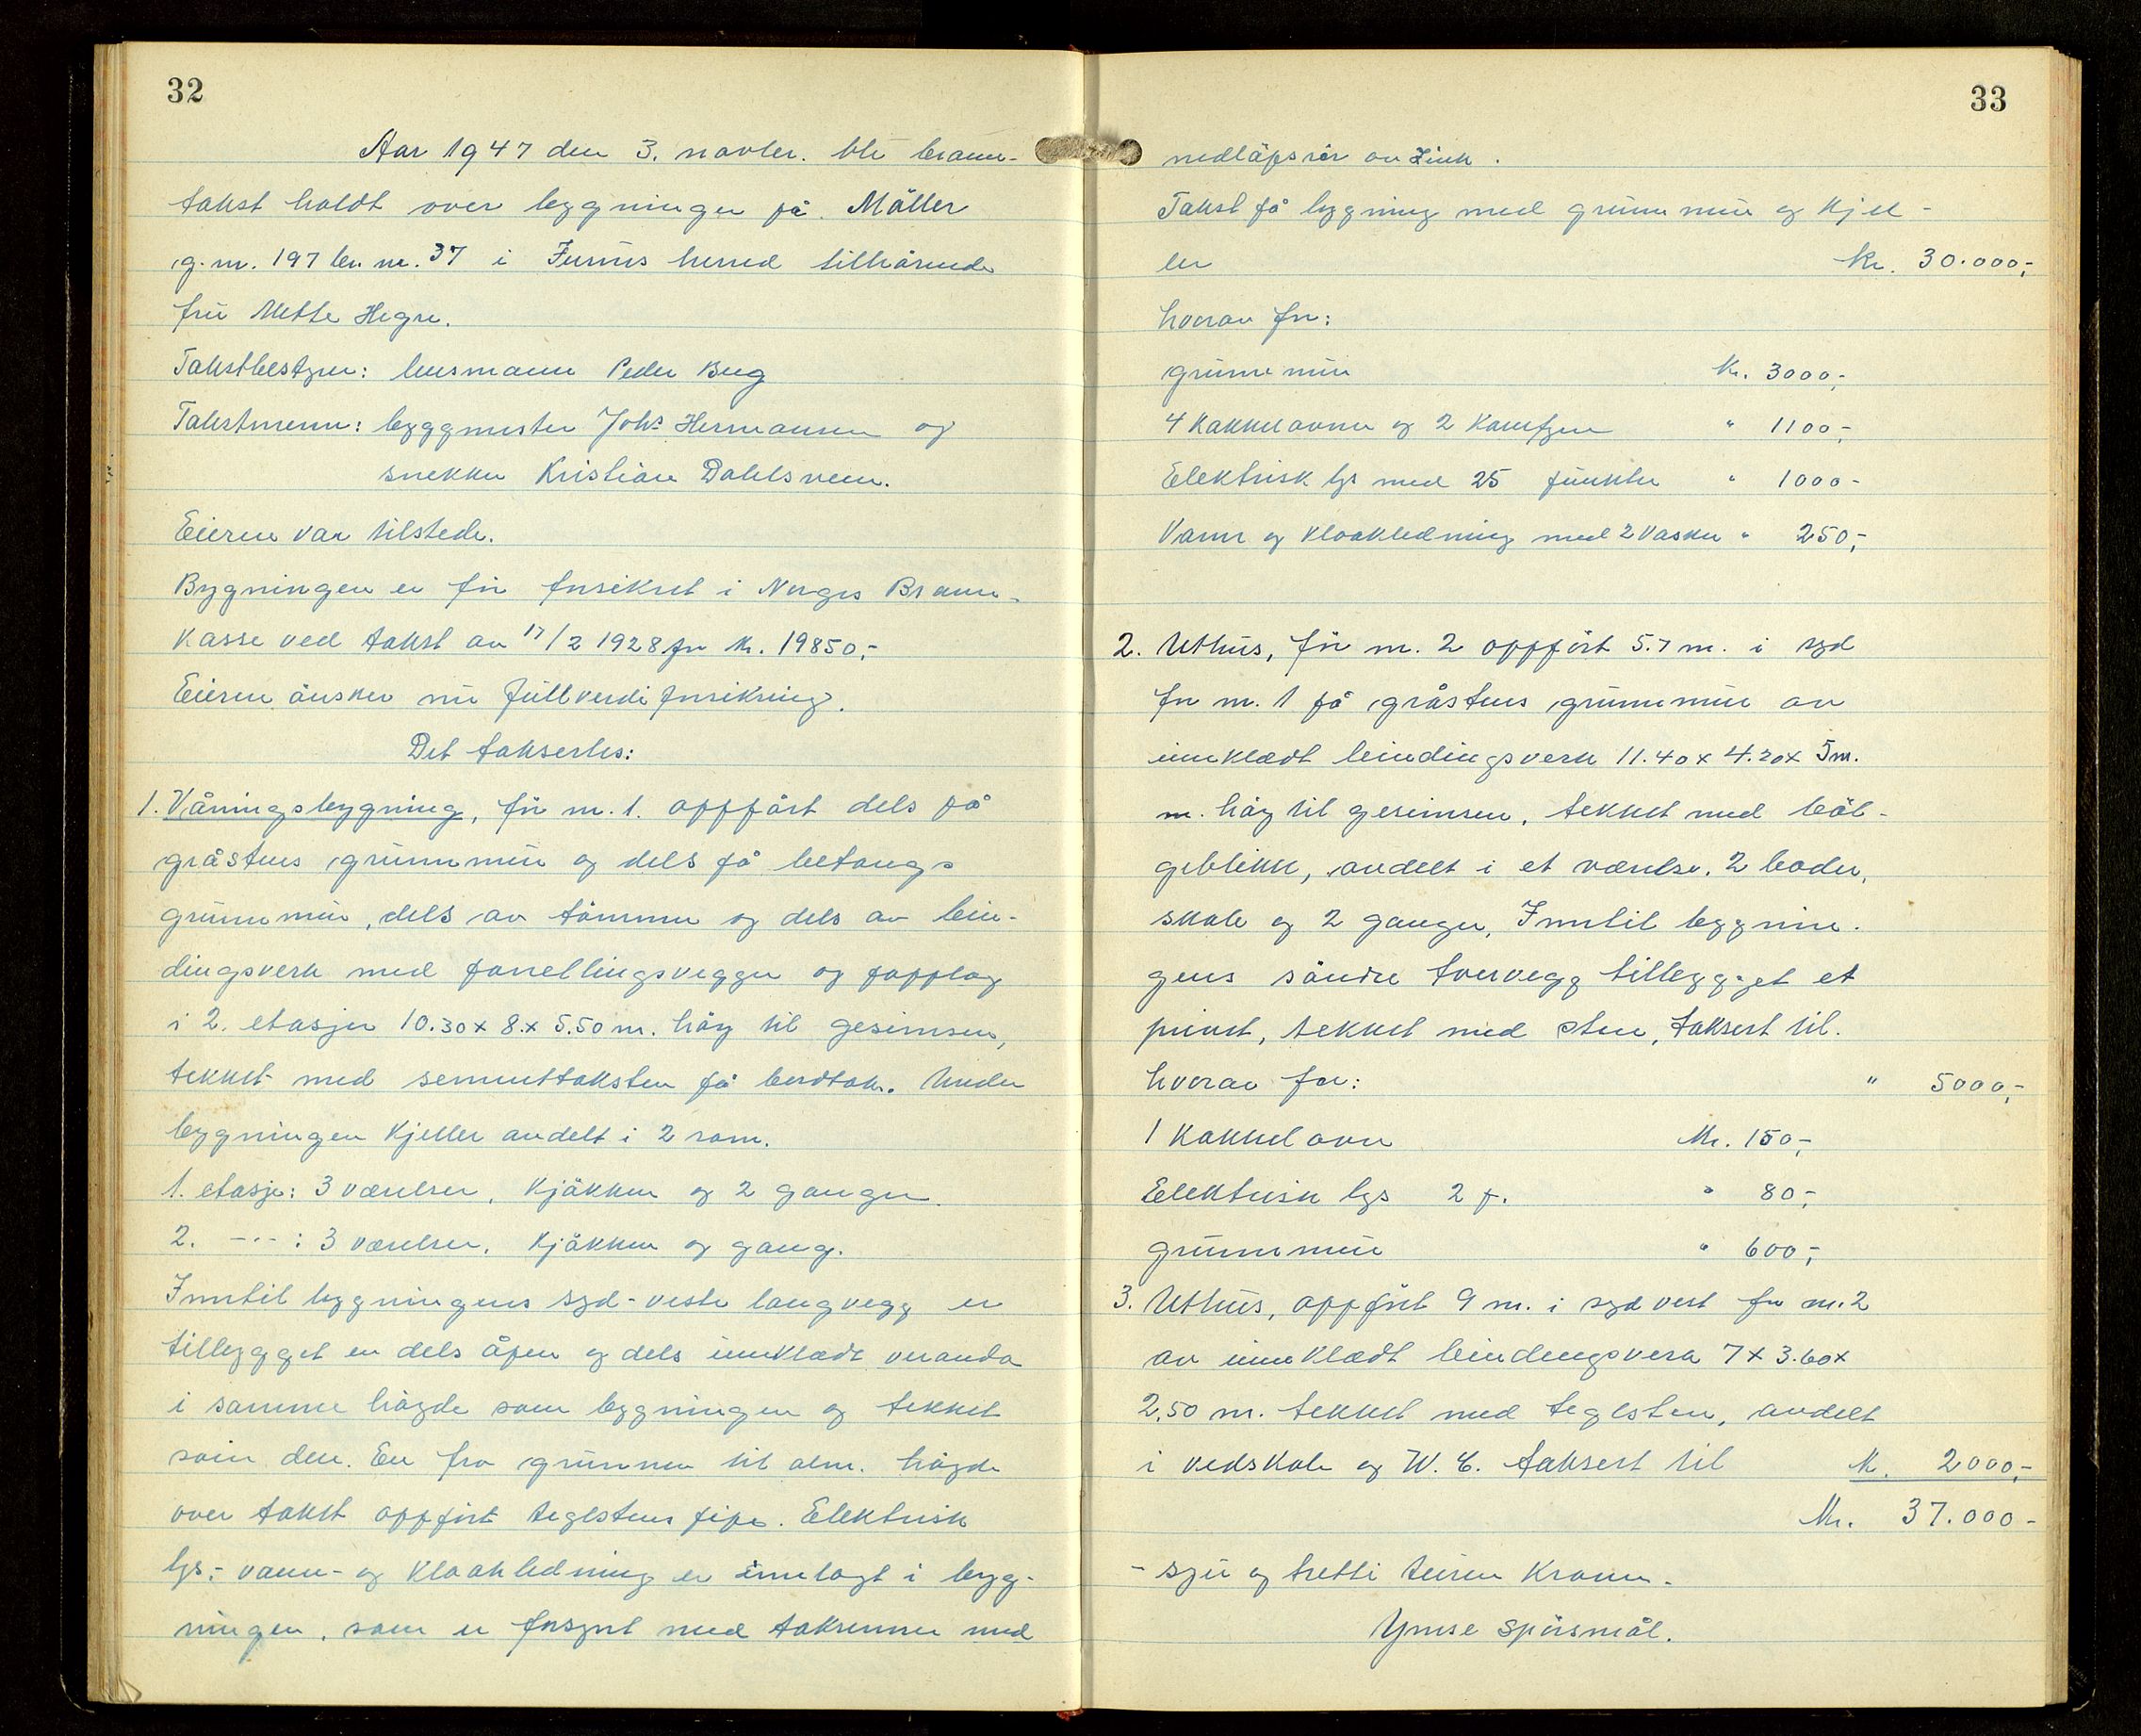 32
Aar 1947 den 3. novbr. ble brann-
takst holdt over bygninger på Möller
g.nr. 197 br. nr. 37 i Furnes herred tilhörende
fru Mette Hegre.
Takstbestyrer: lensmann Peder Berg
Takstmenn: byggmester Johs Hermansen og
snekker Kristian Dahlsveen.
Eieren var tilstede.
Bygningen er för forsikret i Norges Brann-
kasse ved takst av 17/2 1928 for kr. 19850,-
Eieren önsker nu fullverdiforsikring.
Det takseres:
1. Våningsbygning, för nr. 1. oppfört dels på
gråstens grunnmur og dels på betongs
grunnmur, dels av tömmer og dels av bin-
dingsverk med panellingsvegger og papplag
i 2. etasjer 10.30 x 8. x 5.50 m. höy til gesimsen,
tekket med sementtaksten på bordtak. Under
bygningen kjeller avdelt i 2 rom.
1. etasje: 3 værelser, kjökken og 2 ganger.
2. -"- : 3 værelser, kjökken og gang.
Inntil bygningens syd-vestre langvegg er
tilbygget en dels åpen og dels innklædt veranda
i samme höyde som bygningen og tekket
som den. En fra grunnen til alm. höyde
over taket oppfört teglstens pipe. Elektrisk
lys,- vann- og kloakledning er innlagt i byg-
ningen, som er forsynt med takrenner med
33
nedlöpsrör av Zink.
Takst på bygning med grunnmur og kjel-
ler kr. 30.000,-
hvorav for:
grunnmur kr. 3000,-
4 kakkelovner og 2 komfyrer " 1100,-
Elektrisk lys med 25 punkter " 1000-
Vann og kloakledning med 2 vasker " 250,-
2. Uthus, för nr. 2 oppfört 5.7 m. i syd
for nr. 1 på gråstens grunnmur av
innklædt bindingsverk 11.40 x 4.20 x 5 m.
m. höy til gesimsen, tekket med böl-
geblikk, avdelt i et værelse, 2 boder,
skale og 2 ganger, Inntil bygnin-
gens söndre tvervegg tilbygget et
privet, tekket med sten, taksert til.
hvorav for: " 5000,-
1 kakkelovn kr. 150,-
Elektrisk lys 2 p. " 80,-
grunnmur " 600,-
3. Uthus, oppfört 9 m. i syd vest for nr. 2
av innklædt bindingsverk 7 x 3.60 x
2,50 m. tekket med teglsten, avdelt
i vedskale og W. C. taksert til kr. 2000,-
Kr. 37.000-
- syv og tretti tusen kroner -
Ymse spörsmål.